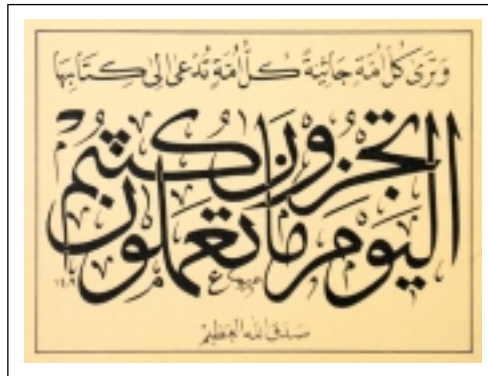 وَتَرَىٰ كُلَّ أُمَّةٍ جَاثِيَةً كُلُّ أُمَّةٍ تُدْعَىٰ إِلَىٰ كِتَابِهَا
اليَوْمَ تُجْزَوْنَ مَا كُنتُمْ تَعْمَلُونَ
صَدَقَ اللهُ العَظِيمُ